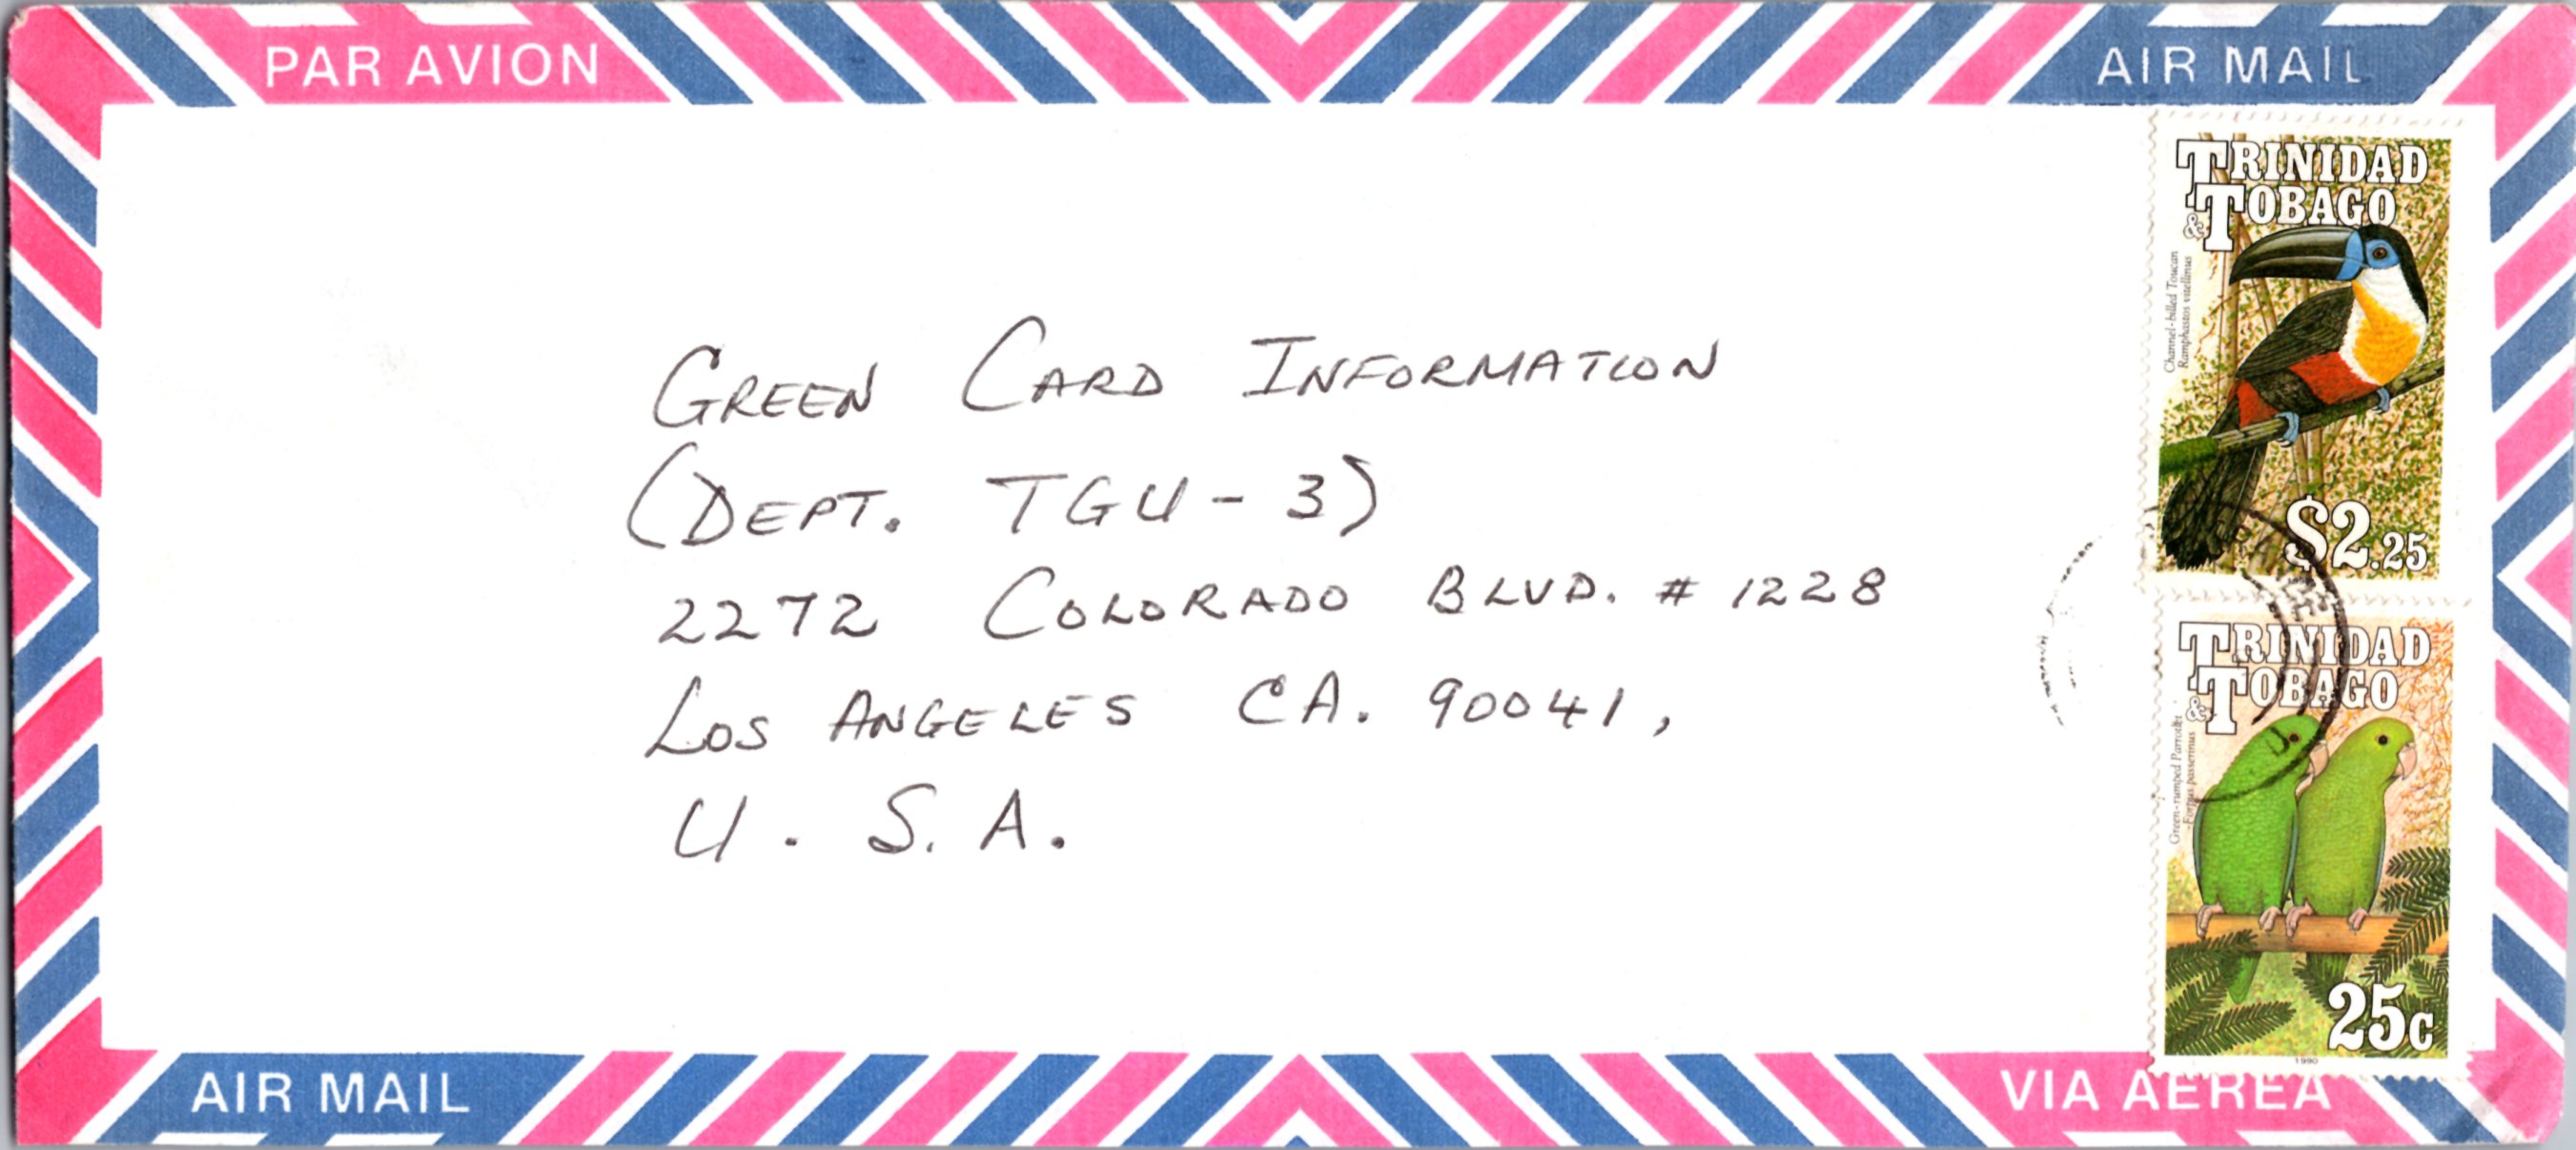 PAR AVION
AIR MAIL
TRINIDAD
& TOBAGO
Channel-billed Toucan
Ramphastos vitellinus
$2.25
GREEN CARD INFORMATION
(DEPT. TGU-3)
2272 COLORADO BLVD. # 1228
LOS ANGELES CA. 90041,
U. S. A.
TRINIDAD
& TOBAGO
Green-rumped Parrotlet
Forpus passerinus
25c
1990
AIR MAIL
VIA AEREA